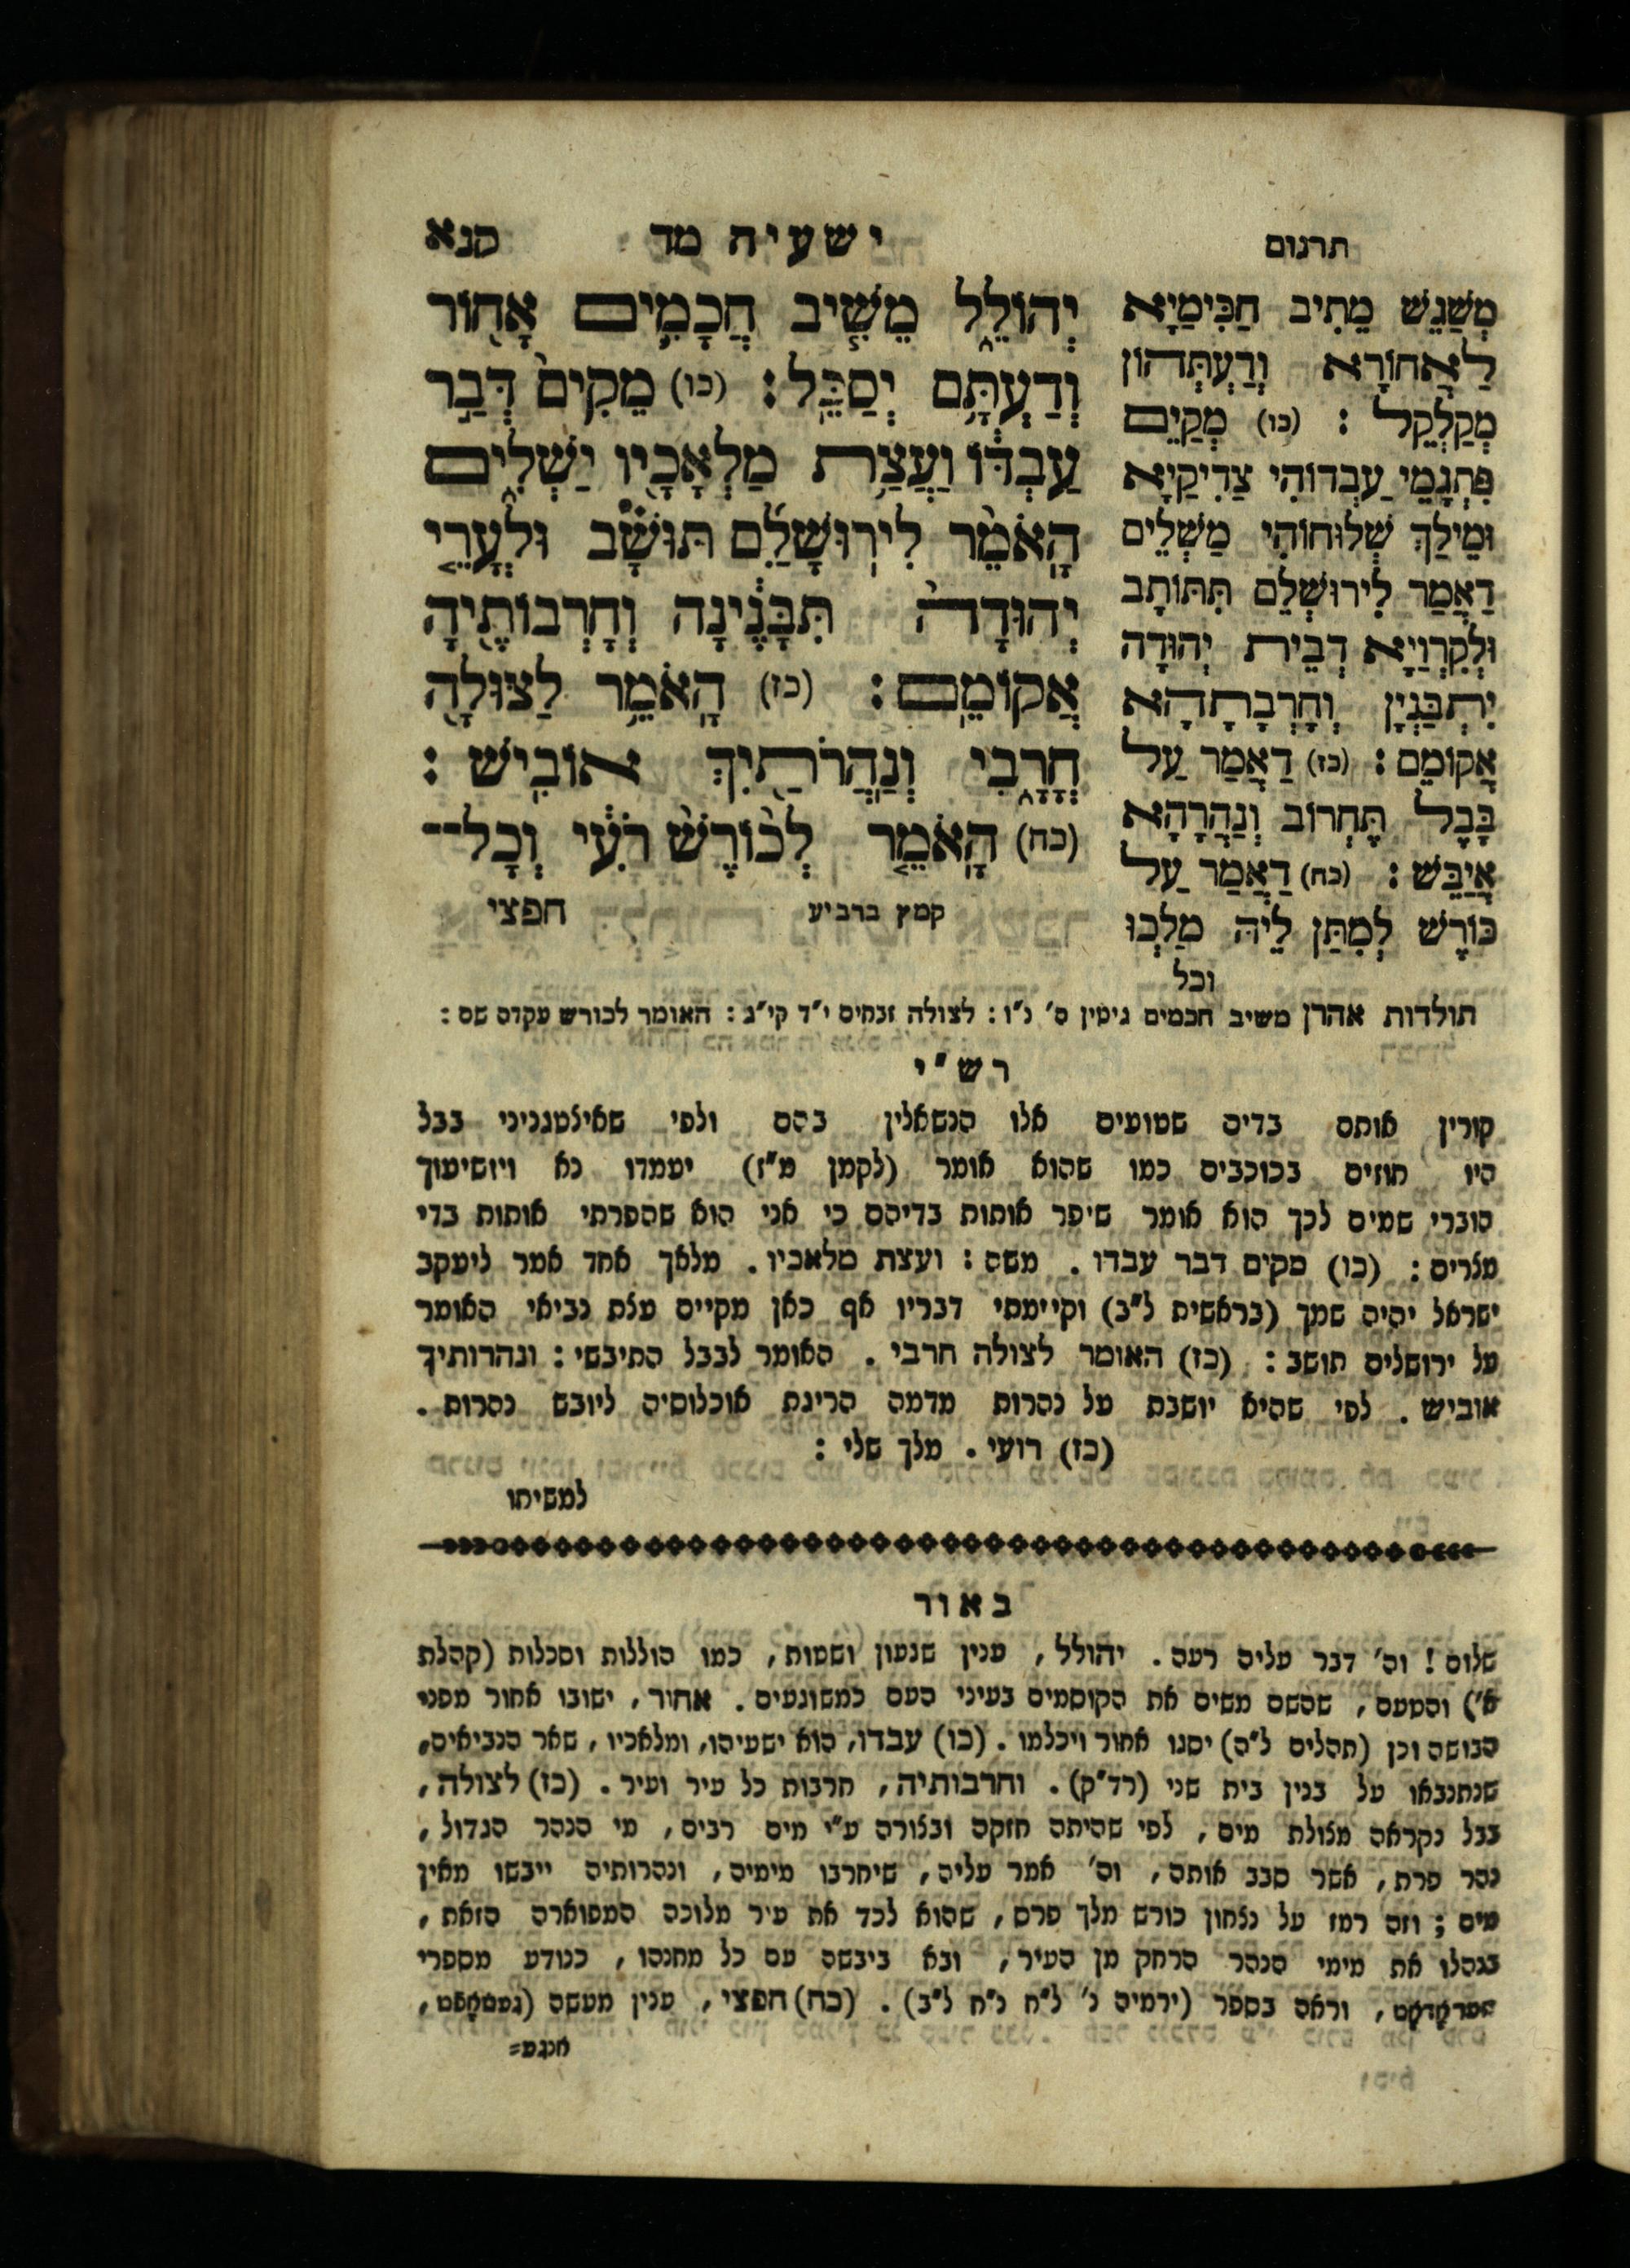 תרגום
ישעיה מד
קנא
יְהוֹלֵ֑ל מֵשִׁ֧יב חֲכָמִ֛ים אָח֖וֹר
וְדַעְתָּ֥ם יְסַכֵּֽל: (כו) מֵקִים֙ דְּבַ֣ר
עַבְדּ֔וֹ וַעֲצַ֥ת מַלְאָכָ֖יו יַשְׁלִ֑ים
הָאֹמֵ֨ר לִירוּשָׁלַ֜͏ִם תּוּשָׁ֗ב וּלְעָרֵ֤י
יְהוּדָה֙ תִּבָּנֶ֔ינָה וְחָרְבוֹתֶ֖יהָ
אֲקוֹמֵֽם: (כז) הָאֹמֵ֥ר לַצּוּלָ֖ה
חֳרָ֑בִי וְנַהֲרֹתַ֖יִךְ אוֹבִֽישׁ:
(כח) הָאֹמֵ֤ר לְכ֙וֹרֶשׁ֙ רֹעִ֔י וְכׇל־
קמץ ברביע
חפצי
מְשַׁגֵשׁ מֵתִיב חַכִּימַיָא
לַאֲחוֹרָא וְדַעְתְּהוֹן
מְקַלְקֵל: (כו) מְקַיֵם
פִּתְגָמֵי עַבְדוֹהִי צַדִיקַיָא
וּמֵילַךְ שְׁלוּחוֹהִי מַשְׁלֵים
דַאֲמַר לִירוּשְׁלֵם תִּתּוֹתָב
וּלְקִרְוַיָא דְבֵית יְהוּדָה
יִתְבַּנְיָן וְחָרְבָתָהָא
אֲקוֹמֵם: (כז) דַאֲמַר עַל
בָּבֶל תֶּחֱרוֹב וְנַהֲרָהָא
אֲיַבֵּשׁ: (כח) דַאֲמַר עַל
כּוֹרֶשׁ לְמִתַּן לֵיהּ מַלְכוּ
וכל
תולדות אהרן משיב חכמים גיטין ס׳ נ״ו: לצולה זבחים י״ד קי״ג: האומר לכורש עקדה שם:
רש״י
קורין אותם בדים שטועים אלו הנשאלין בהם ולפי שאילטגניני בבל
היו חוזים בכוכבים כמו שהוא אומר (לקמן מ״ז) יעמדו נא ויושיעוך
הוברי שמים לכך הוא אומר שיפר אותות בדיהם כי אני הוא שהפרתי אותות בדי
מצרים: (כו) מקים דבר עבדו. משה: ועצת מלאכיו. מלאך אחד אמר ליעקב
ישראל יהיה שמך (בראשית ל״ב) וקיימתי דבריו אף כאן מקיים עצת נביאי האומר
על ירושלים תושב: (כז) האומר לצולה חרבי. האומר לבבל התיבשי: ונהרותיך
אוביש. לפי שהיא יושבת על נהרות מדמה הריגת אוכלוסיה ליובש נהרות.
(כז) רועי. מלך שלי:
למשיחו
באור
שלום! וה׳ דבר עליה רעה. יהולל, ענין שגעון ושטות, כמו הוללות וסכלות (קהלת
א׳) והטעם, שהשם משים את הקוסמים בעיני העם כמשוגעים. אחור, ישובו אחור מפני
הבושה וכן (תהלים ל״ה) יסגו אחור ויכלמו. (כו) עבדו, הוא ישעיהו, ומלאכיו, שאר הנביאים,
שנתנבאו על בנין בית שני (רד״ק). וחרבותיה, חרבות כל עיר ועיר. (כז) לצולה,
בבל נקראה מצולת מים, לפי שהיתה חזקה ובצורה ע״י מים רבים, מי הנהר הגדול,
נהר פרת, אשר סבב אותה, וה׳ אמר עליה, שיחרבו מימיה, ונהרותיה ייבשו מאין
מים; וזה רמז על נצחון כורש מלך פרס, שהוא לכד את עיר מלוכה המפוארה הזאת,
בנהלו את מימי הנהר הרחק מן העיר, ובא ביבשה עם כל מחנהו, כנודע מספרי
וראה בספר (ירמיה נ׳ ל״ח נ״ח ל״ב). (כח) חפצי, ענין מעשה